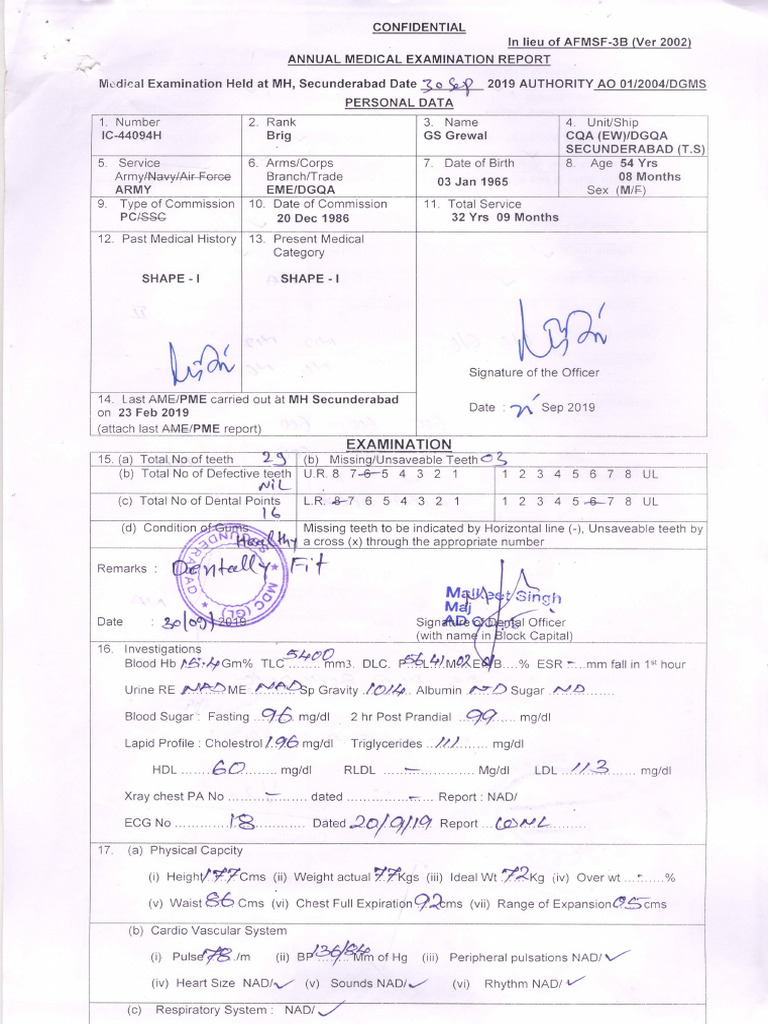 CONFIDENTIAL
In lieu of AFMSF-3B (Ver 2002)
ANNUAL MEDICAL EXAMINATION REPORT
Medical Examination Held at MH, Secunderabad Date 30 Sep 2019 AUTHORITY AO 01/2004/DGMS
PERSONAL DATA
1. Number
IC-44094H
2. Rank
Brig
3. Name
GS Grewal
4. Unit/Ship
CQA (EW)/DGQA
SECUNDERABAD (T.S)
5. Service
Army/Navy/Air Force
ARMY
6. Arms/Corps
Branch/Trade
EME/DGQA
7. Date of Birth
03 Jan 1965
8. Age 54 Yrs
08 Months
Sex (M/F)
9. Type of Commission
PC/SSC
10. Date of Commission
20 Dec 1986
11. Total Service
32 Yrs 09 Months
12. Past Medical History
SHAPE - I
13. Present Medical
Category
SHAPE - I
Signature of the Officer
Date : Sep 2019
14. Last AME/PME carried out at MH Secunderabad
on 23 Feb 2019
(attach last AME/PME report)
EXAMINATION
15. (a) Total No of teeth 29
(b) Missing/Unsaveable Teeth 03
(b) Total No of Defective teeth
NIL
U.R. 8 7 6 5 4 3 2 1
1 2 3 4 5 6 7 8 UL
(c) Total No of Dental Points
16
L.R. 8 7 6 5 4 3 2 1
1 2 3 4 5 6 7 8 UL
(d) Condition of Gums
Healthy
Missing teeth to be indicated by Horizontal line (-), Unsaveable teeth by
a cross (x) through the appropriate number
Remarks : Dentally Fit
MDC (GL)
SECUNDERABAD
Malkeet Singh
Maj
Date : 30/09/2019
Signature of Dental Officer
(with name in Block Capital)
16. Investigations
Blood Hb 15.4 Gm% TLC 5400 mm3. DLC. P 56 L 41 M 02 E 01 B....% ESR - mm fall in 1st hour
Urine RE NAD ME NAD Sp Gravity 1014 Albumin ND Sugar ND
Blood Sugar : Fasting 96 mg/dl 2 hr Post Prandial 99 mg/dl
Lapid Profile : Cholestrol 196 mg/dl Triglycerides 111 mg/dl
HDL 60 mg/dl RLDL - Mg/dl LDL 113 mg/dl
Xray chest PA No - dated - Report : NAD/
ECG No 18 Dated 20/9/19 Report WNL
17. (a) Physical Capcity
(i) Height 177 Cms (ii) Weight actual 77 Kgs (iii) Ideal Wt 72 Kg (iv) Over wt - %
(v) Waist 86 Cms (vi) Chest Full Expiration 92 cms (vii) Range of Expansion 05 cms
(b) Cardio Vascular System
(i) Pulse 78 /m (ii) BP 136/84 Mm of Hg (iii) Peripheral pulsations NAD/ ✓
(iv) Heart Size NAD/ ✓ (v) Sounds NAD/ ✓ (vi) Rhythm NAD/ ✓
(c) Respiratory System : NAD/ ✓